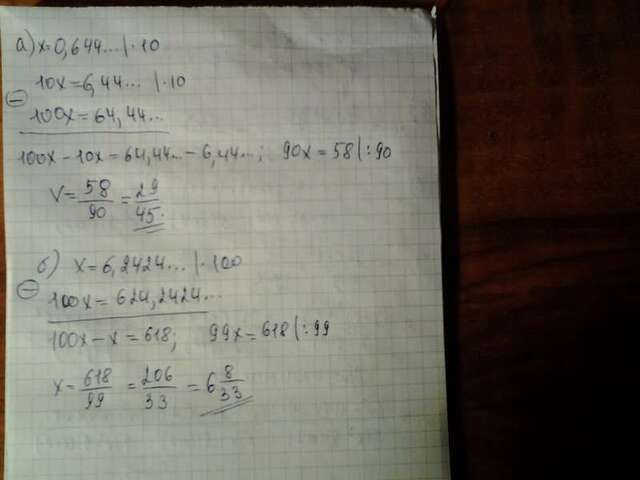 а) x=0,644... |·10
10x=6,44... |·10
−
100x=64,44...
100x-10x=64,44...-6,44...; 90x=58|:90
V=58/90=29/45
б) x=6,2424... |·100
−
100x=624,2424...
100x-x=618; 99x=618|:99
x=618/99=206/33=6 8/33